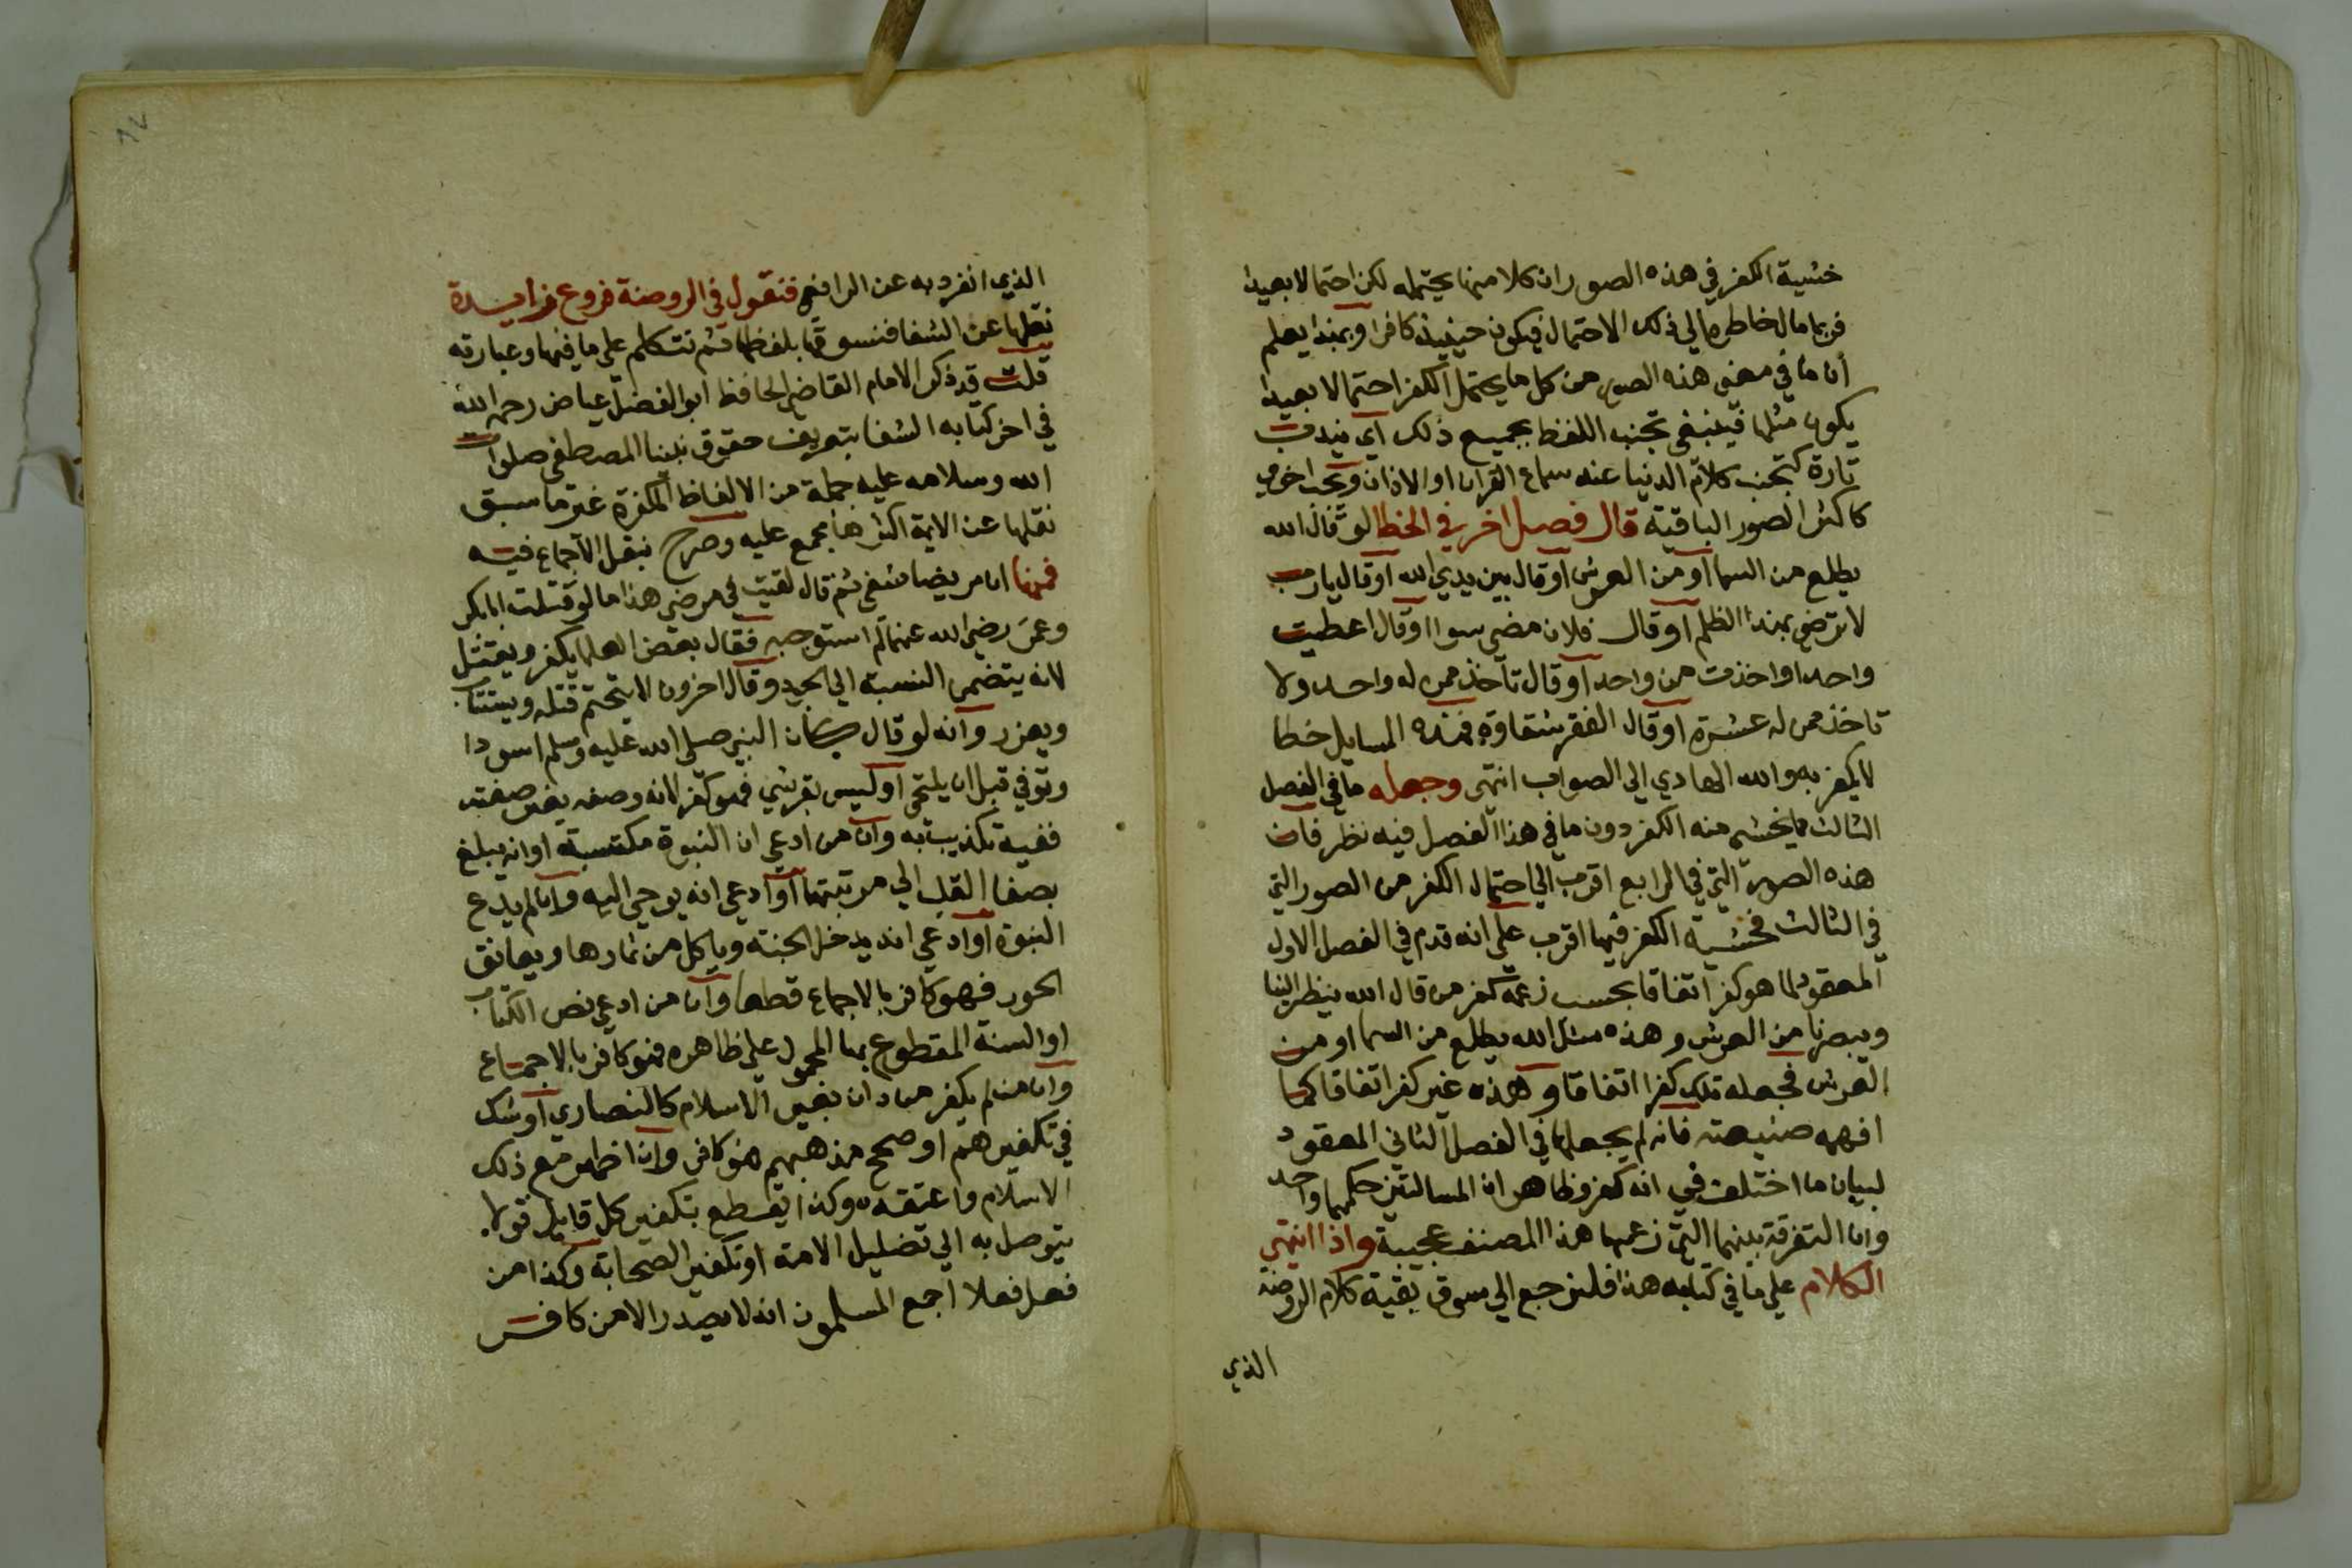 خشية الكفر في هذه الصور ان كلا منها يحتمله لكن احتمالا بعيدا
فربما مال خاطره الي ذلك الاحتمال فيكون حينيذ كافرا وبهذا يعلم
أن ما في معني هذه الصور من كل ما يحتمل الكفر احتمالا بعيدا
يكون مثلها فينبغي تجنب اللفظ بجميع ذلك اي يندب
تارة كتجنب كلام الدنيا عند سماع القران او الاذان ويجب اخري
كاكثر الصور الباقية قال فصل اخر في الخطا لو قال الله
يطلع من السما او من العرش او قال بين يدي الله او قال يا رب
لا ترضي بهذا الظلم او قال فلان مضي سوا او قال اعطيت
واحدا واخذت من واحد او قال تاخذ ممن له واحد ولا
تاخذ ممن له عشرة او قال الفقر شقاوة فهذه المسايل خطا
لا يكفر به والله الهادي الي الصواب انتهي وجعله ما في الفصل
الثالث مما يخشي منه الكفر دون ما في هذا الفصل فيه نظر فان
هذه الصورة التي في الرابع اقرب الي احتمال الكفر من الصور التي
في الثالث فخشية الكفر فيها اقرب علي انه قدم في الفصل الاول
المعقود لما هو كفر اتفاقا بحسب زعمه كفر من قال الله ينظر الينا
ويبصرنا من العرش وهذه مثل الله يطلع من السما او من
العرش فجعله تلك كفرا اتفاقا وهذه غير كفر اتفاقا كما
افهمه صنيعه فانه لم يجعلها في الفصل الثاني المعقود
لبيان ما اختلف في انه كفر وظاهر ان المسالتين حكمهما واحد
وان التفرقة بينهما التي زعمها هذا المصنف عجيبة واذا انتهي
الكلام علي ما في كتابه هذا فلنرجع الي سوق بقية كلام الروضة
الذي
الذي انفرد به عن الرافعي فنقول في الروضة فروع زايدة
نقلها عن الشفا فنسوقها بلفظها ثم نتكلم علي ما فيها وعبارته
قلت قد ذكر الامام القاضي الحافظ ابو الفضل عياض رحمه الله
في اخر كتابه الشفا بتعريف حقوق نبينا المصطفي صلوات
الله وسلامه عليه جملة من الالفاظ المكفرة غير ما سبق
نقلها عن الايمة اكثرها مجمع عليه وصرح بنقل الاجماع فيه
فمنها ان مريضا شفي ثم قال لقيت في مرضي هذا ما لو قتلت ابا بكر
وعمر رضي الله عنهما لم استوجبه فقال بعض العلما يكفر ويقتل
لانه يتضمن النسبة الي الجور وقال اخرون لا يتحتم قتله ويستتاب
ويعزر وانه لو قال كان النبي صلي الله عليه وسلم اسودا
وتوفي قبل ان يلتحي او ليس بقرشي فهو كفر لانه وصفه بغير صفته
ففيه تكذيب به وان من ادعي ان النبوة مكتسبة او انه يبلغ
بصفا القلب الي مرتبتها او ادعي انه يوحي اليه وان لم يدع
النبوة او ادعي انه يدخل الجنة وياكل من ثمارها ويعانق
الحور فهو كافر بالاجماع قطعا وان من ادعي نص الكتاب
او السنة المقطوع بها المحمول علي ظاهره فهو كافر بالاجماع
وان من لم يكفر من دان بغير الاسلام كالنصاري او شك
في تكفيرهم او صحح مذهبهم فهو كافر وان اظهر مع ذلك
الاسلام واعتقده وكذا يقطع بتكفير كل قايل قولا
يتوصل به الي تضليل الامة او تكفير الصحابة وكذا من
فعل فعلا اجمع المسلمون انه لا يصدر الا من كافر